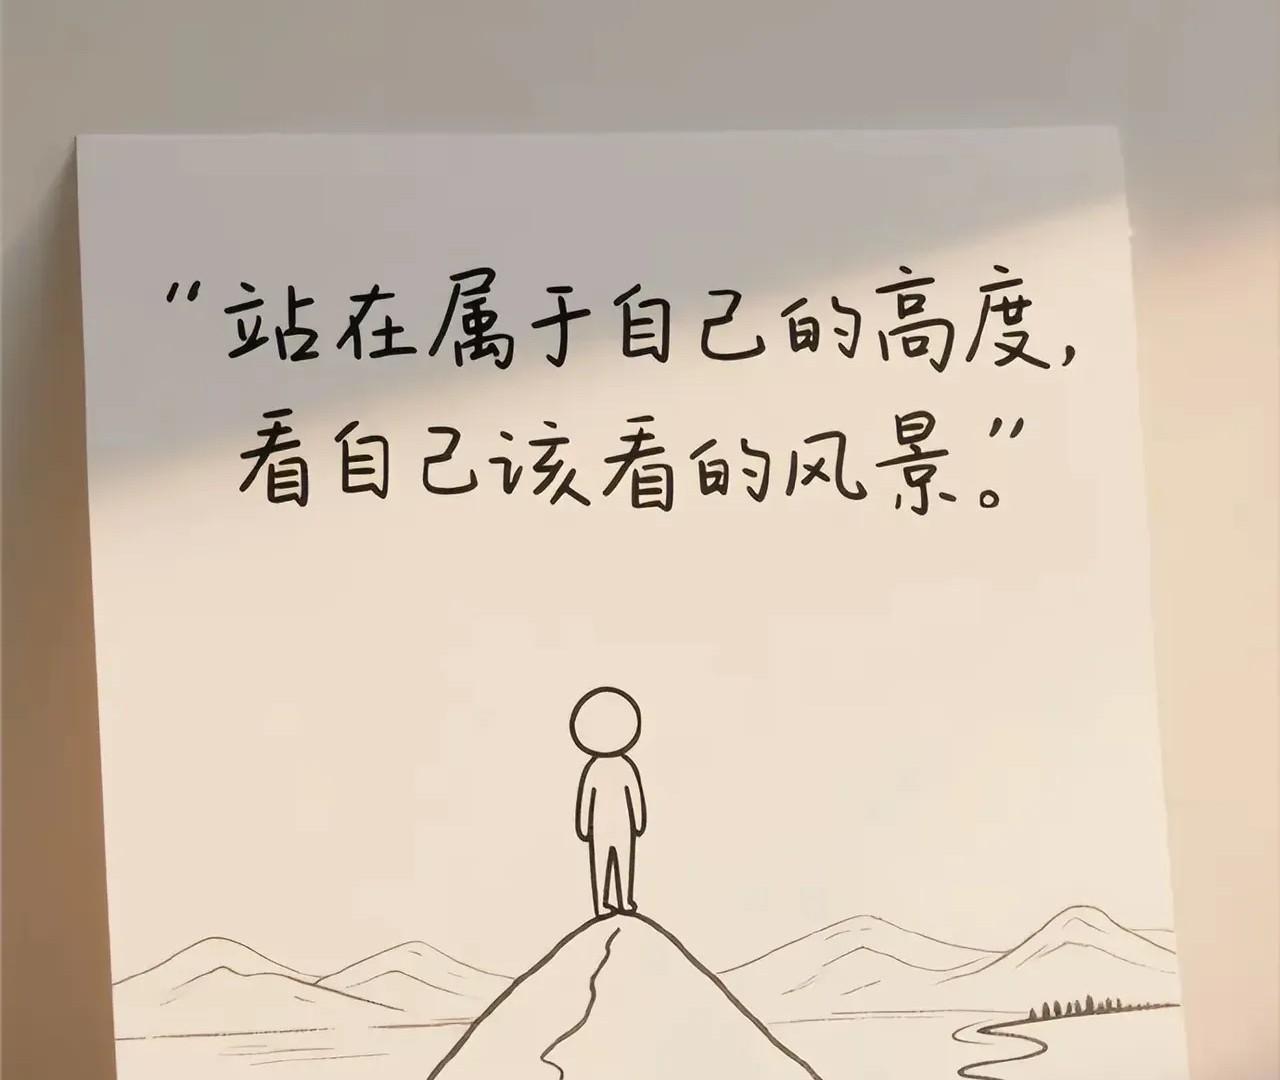 “站在属于自己的高度,
看自己该看的风景。”